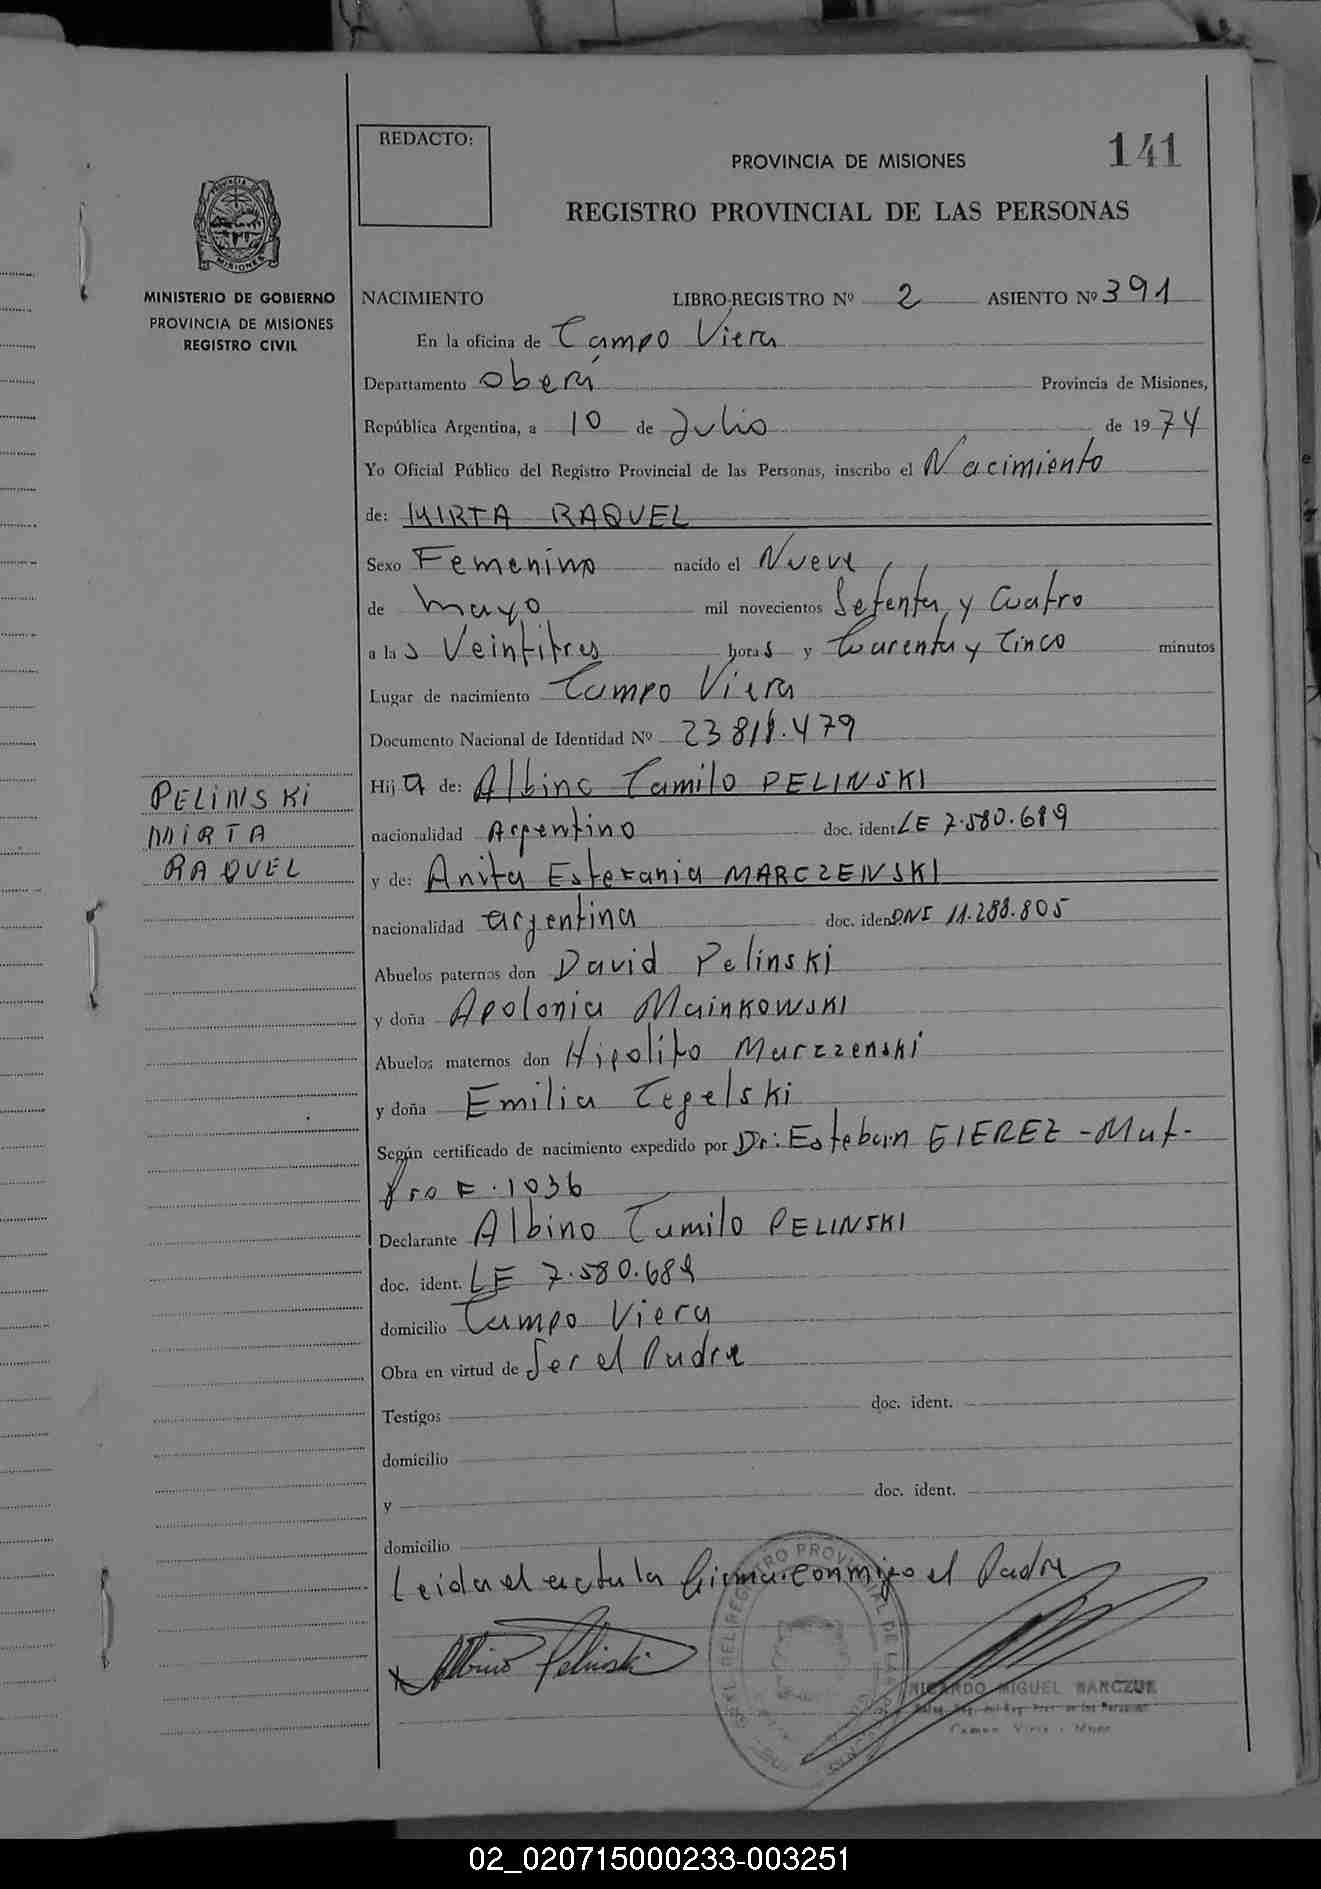 REDACTO:
PROVINCIA DE MISIONES
141
REGISTRO PROVINCIAL DE LAS PERSONAS
MINISTERIO DE GOBIERNO
PROVINCIA DE MISIONES
REGISTRO CIVIL
NACIMIENTO LIBRO-REGISTRO Nº 2 ASIENTO Nº 391
En la oficina de Campo Viera
Departamento Oberá Provincia de Misiones,
República Argentina, a 10 de Julio de 1974
Yo Oficial Público del Registro Provincial de las Personas, inscribo el Nacimiento
de: MIRTA RAQUEL
Sexo Femenino nacido el Nueve
de mayo mil novecientos Setenta y Cuatro
a las Veintitres horas y Cuarenta y Cinco minutos
Lugar de nacimiento Campo Viera
Documento Nacional de Identidad Nº 23.811.479
Hija de: Albino Camilo PELINSKI
PELINSKI
MIRTA
RAQUEL
nacionalidad Argentino doc. ident LE 7.580.689
y de: Anita Estefania MARCZENSKI
nacionalidad argentina doc. iden DNI 11.288.805
Abuelos paternos don David Pelinski
y doña Apolonia Mainkowski
Abuelos maternos don Hipolito Marczenski
y doña Emilia Cegelski
Según certificado de nacimiento expedido por Dr: Esteban GIEREZ - Mat.
Pro F. 1036
Declarante Albino Camilo PELINSKI
doc. ident. LE 7.580.689
domicilio Campo Viera
Obra en virtud de Ser el Padre
Testigos doc. ident.
domicilio
y doc. ident.
domicilio
Leida el acta la firma conmigo el Padre
Albino Pelinski
RICARDO MIGUEL BARCZUK
Campo Viera - Mnes
02_020715000233-003251